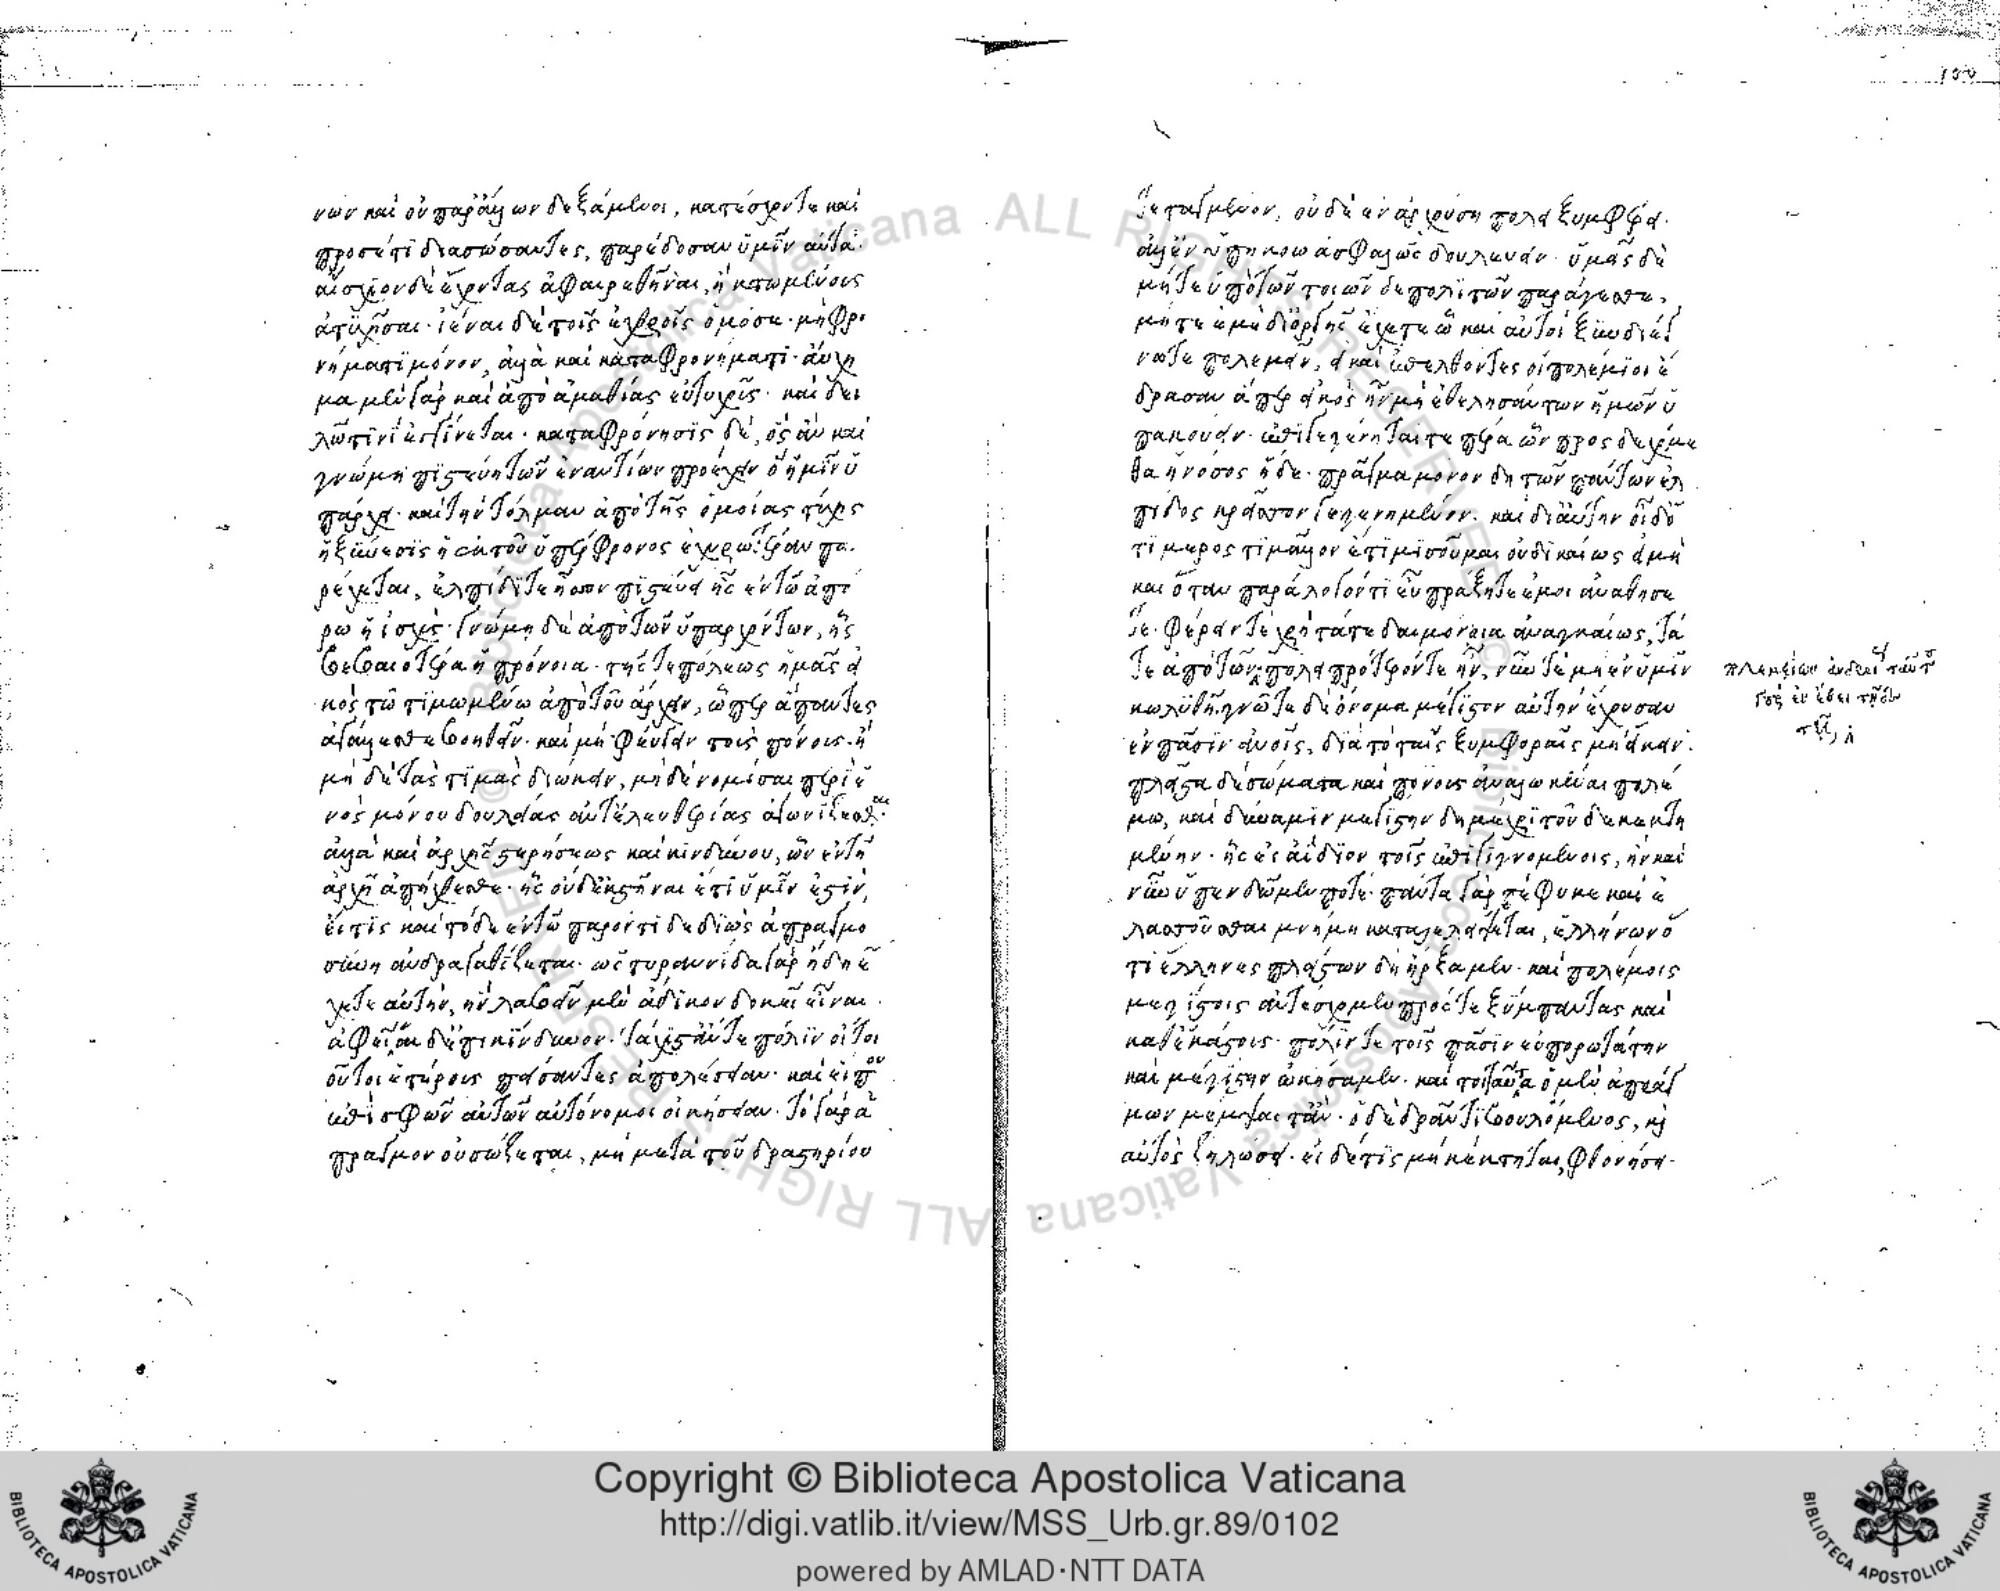 νων καὶ οὐ παρ' ἄλλων δεξάμενοι, κατέσχον τε καὶ
προσέτι διασώσαντες, παρέδοσαν ὑμῖν αὐτά·
αἴσχιον δὲ ἔχοντας ἀφαιρεθῆναι, ἢ κτωμένους
ἀτυχῆσαι· ἰέναι δὲ τοῖς ἐχθροῖς ὁμόσε· μὴ φρο
νήματι μόνον, ἀλλὰ καὶ καταφρονήματι· αὔχη
μα μὲν γὰρ καὶ ἀπὸ ἀμαθίας εὐτυχοῦς· καὶ δει
λῷ τινὶ ἐγγίνεται· καταφρόνησις δὲ, ὃς ἂν καὶ
γνώμῃ πιστεύῃ τῶν ἐναντίων προέχειν ὃ ἡμῖν ὑ
πάρχει· καὶ τὴν τόλμαν ἀπὸ τῆς ὁμοίας τύχης
ἡ ξύνεσις ἐκ τοῦ ὑπέρφρονος ἐχυρωτέραν πα
ρέχεται, ἐλπίδι τε ἧσσον πιστεύει ἧς ἐν τῷ ἀπό
ρῳ ἡ ἰσχύς· γνώμῃ δὲ ἀπὸ τῶν ὑπαρχόντων, ἧς
βεβαιοτέρα ἡ πρόνοια· τῆς τε πόλεως ἡμᾶς εἰ
κὸς τῷ τιμωμένῳ ἀπὸ τοῦ ἄρχειν, ᾧπερ ἅπαντες
ἀγάλλεσθε βοηθεῖν· καὶ μὴ φεύγειν τοὺς πόνους· ἢ
μηδὲ τὰς τιμὰς διώκειν, μηδὲ νομίσαι περὶ ἑ
νὸς μόνου δουλείας ἀντ' ἐλευθερίας ἀγωνίζεσθαι·
ἀλλὰ καὶ ἀρχῆς στερήσεως καὶ κινδύνου, ὧν ἐν τῇ
ἀρχῇ ἀπήχθεσθε· ἧς οὐδ' ἐκστῆναι ἔτι ὑμῖν ἐστὶν,
εἴ τις καὶ τόδε ἐν τῷ παρόντι δεδιὼς ἀπραγμο
σύνῃ ἀνδραγαθίζεται· ὡς τυραννίδα γὰρ ἤδη ἔ
χετε αὐτὴν, ἣν λαβεῖν μὲν ἄδικον δοκεῖ εἶναι·
ἀφεῖναι δὲ ἐπικίνδυνον· τάχιστ' ἄν τε πόλιν οἱ τοι
οῦτοι ἑτέρους πείσαντες ἀπολέσειαν· καὶ εἴ που
ἐπὶ σφῶν αὐτῶν αὐτόνομοι οἰκήσειαν· τὸ γὰρ ἄ
πραγμον οὐ σώζεται, μὴ μετὰ τοῦ δραστηρίου
τεταγμένον, οὐδὲ ἐν ἀρχούσῃ πόλει ξυμφέρει·
ἀλλ' ἐν ὑπηκόῳ ἀσφαλῶς δουλεύειν· ὑμεῖς δὲ
μήτε ὑπὸ τῶν τοιῶνδε πολιτῶν παράγεσθε,
μήτε ἐμὲ δι' ὀργῆς ἔχετε ᾧ καὶ αὐτοὶ ξυνδιέγ
νωτε πολεμεῖν, εἰ καὶ ἐπελθόντες οἱ πολέμιοι ἔ
δρασαν ἅπερ εἰκὸς ἦν μὴ ἐθελησάντων ἡμῶν ὑ
πακούειν· ἐπιγεγένηταί τε πέρα ὧν προσεδεχόμε
θα ἡ νόσος ἥδε· πρᾶγμα μόνον δὴ τῶν πάντων ἐλ
πίδος κρεῖσσον γεγενημένον· καὶ δι' αὐτὴν οἶδ' ὅ
τι μέρος τι μᾶλλον ἔτι μισοῦμαι οὐ δικαίως εἰ μὴ
καὶ ὅταν παρὰ λόγον τι εὖ πράξητε ἐμοὶ ἀναθήσε
τε· φέρειν τὲ χρὴ τά τε δαιμόνια ἀναγκαίως, τά
τε ἀπὸ τῶν πολε πρότερόν τε ἦν, νῦν τὲ μὴ ἐν ὑμῖν
κωλυθῇ· γνῶτε δὲ ὄνομα μέγιστον αὐτὴν ἔχουσαν
ἐν πᾶσιν ἀνοις, διὰ τὸ ταῖς ξυμφοραῖς μὴ εἴκειν·
πλεῖστα δὲ σώματα καὶ πόνους ἀναλωκέναι πολέ
μῳ, καὶ δύναμιν μεγίστην δὴ μέχρι τοῦδε κεκτη
μένην· ἧς ἐς ἀίδιον τοῖς ἐπιγιγνομένοις, ἢν καὶ
νῦν ὑπενδῶμεν ποτέ· πάντα γὰρ πέφυκε καὶ ἐ
λασσοῦσθαι μνήμη καταλελείψεται, ἑλλήνων ὅ
τι ἕλληνες πλείστων δὴ ἤρξαμεν· καὶ πολέμοις
μεγίστοις ἀντέσχομεν πρός τε ξύμπαντας καὶ
καθ' ἑκάστους· πόλιν τε τοῖς πᾶσιν εὐπορωτάτην
καὶ μεγίστην ᾠκήσαμεν· καὶ τοι ταῦτα ὁ μὲν ἀπράγ
μων μέμψαιτ' ἄν· ὁ δὲ δρᾶν τι βουλόμενος, καὶ
αὐτὸς ζηλώσει· εἰ δέ τις μὴ κέκτηται, φθονήσει·
Copyright © Biblioteca Apostolica Vaticana
http://digi.vatlib.it/view/MSS_Urb.gr.89/0102
powered by AMLAD·NTT DATA